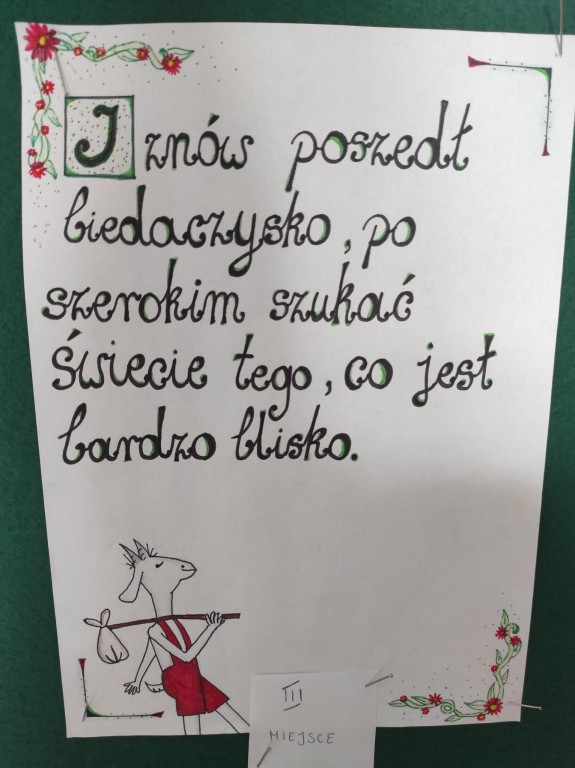 I znów poszedł
biedaczysko, po
szerokim szukać
świecie tego, co jest
bardzo blisko.
III
MIEJSCE